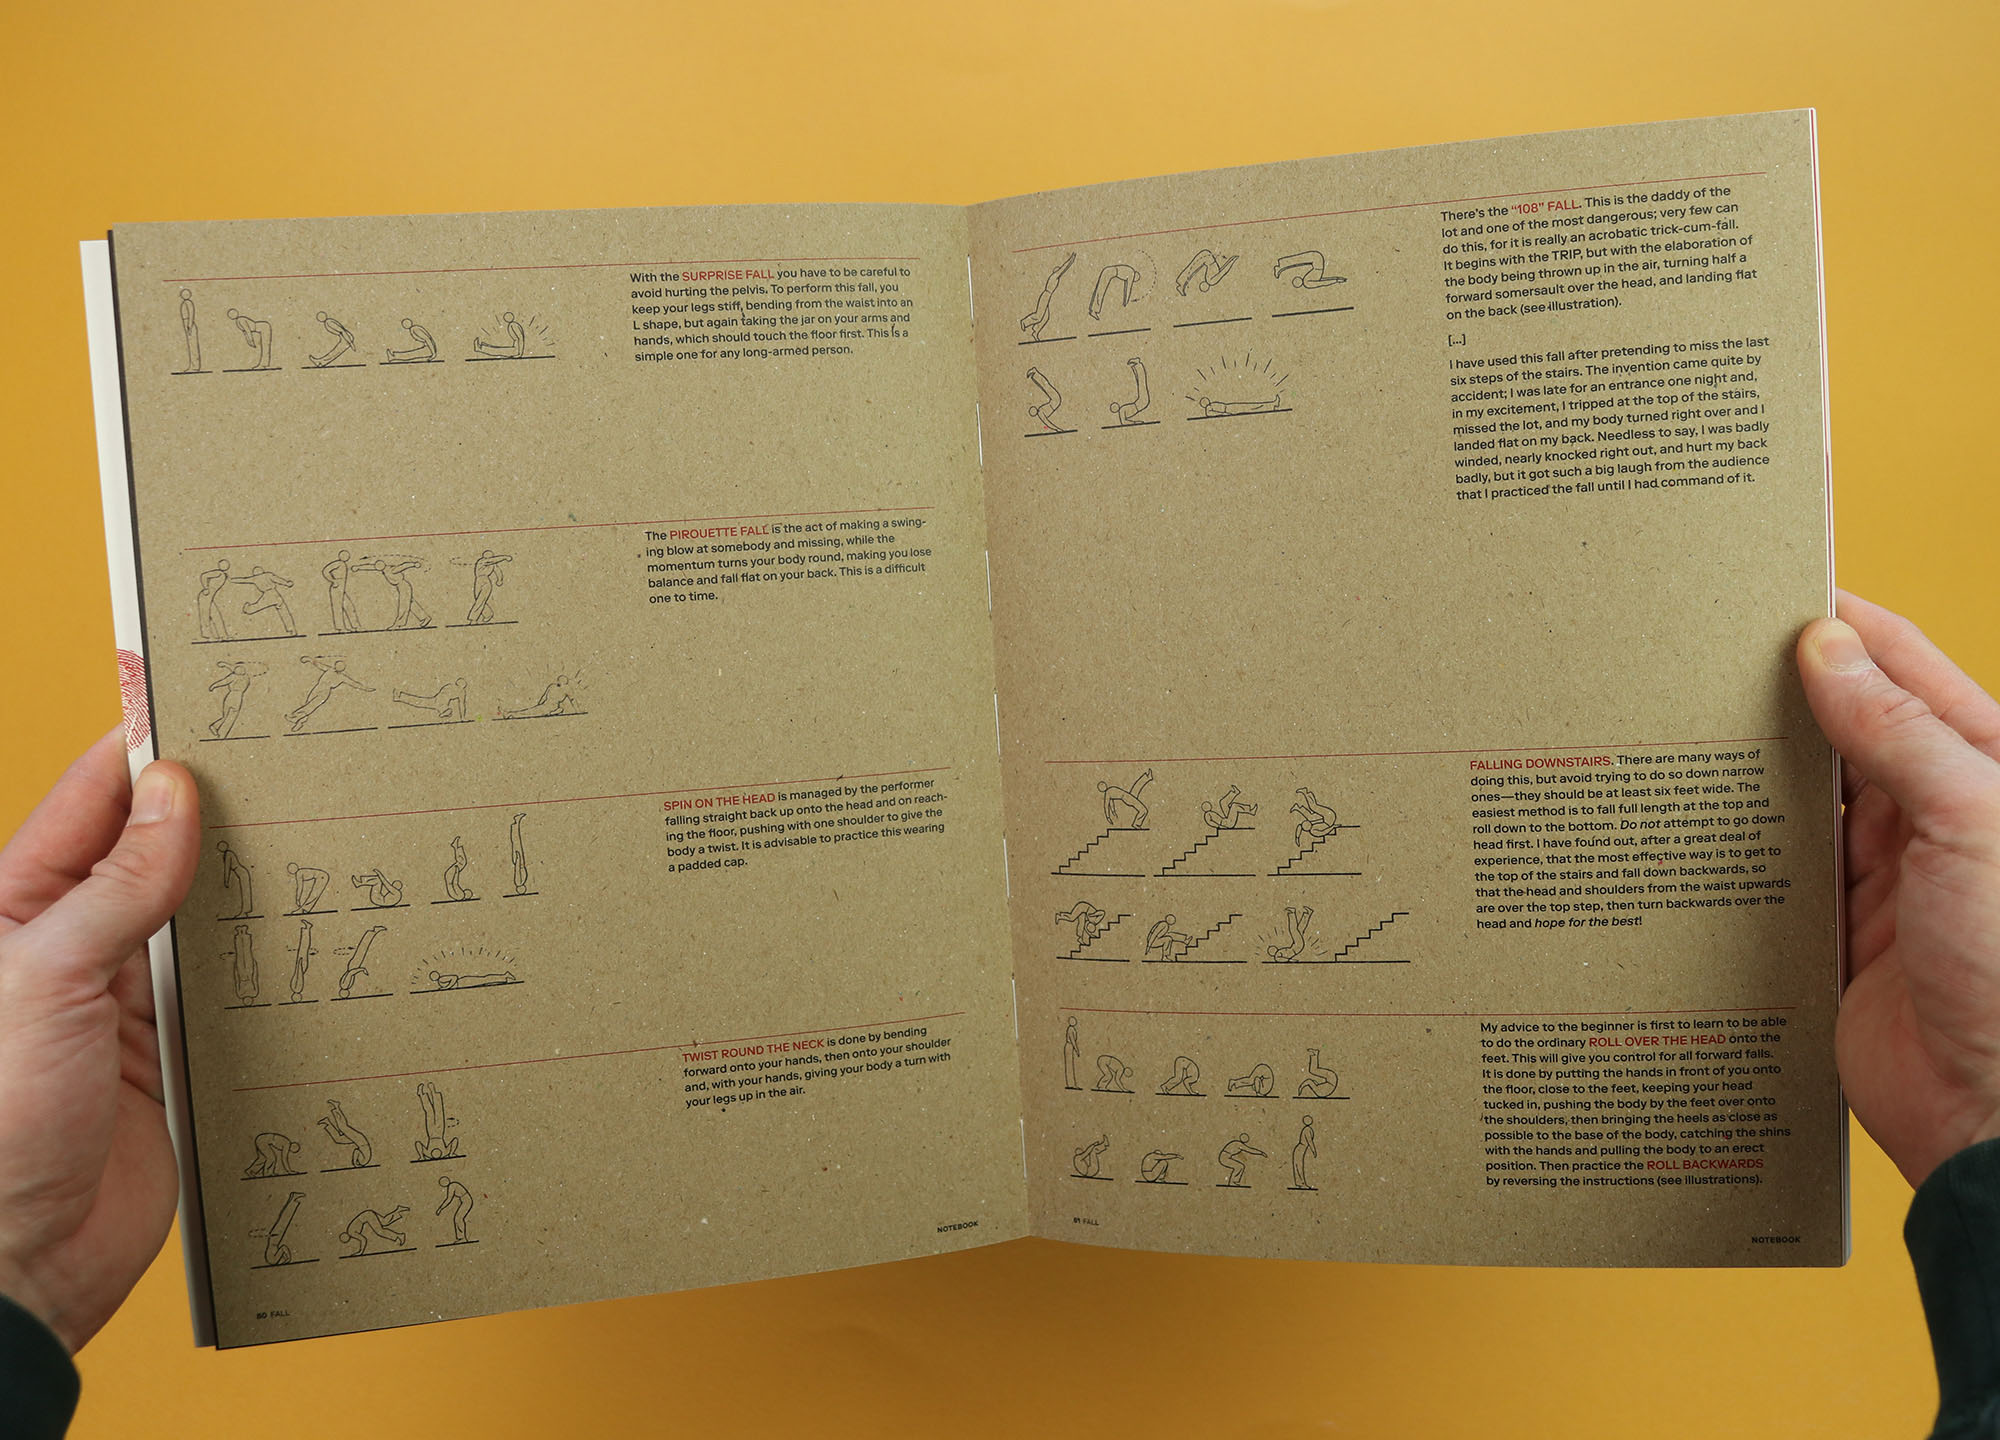 With the SURPRISE FALL you have to be careful to
avoid hurting the pelvis. To perform this fall, you
keep your legs stiff, bending from the waist into an
L shape, but again taking the jar on your arms and
hands, which should touch the floor first. This is a
simple one for any long-armed person.
The PIROUETTE FALL is the act of making a swing-
ing blow at somebody and missing, while the
momentum turns your body round, making you lose
balance and fall flat on your back. This is a difficult
one to time.
SPIN ON THE HEAD is managed by the performer
falling straight back up onto the head and on reach-
ing the floor, pushing with one shoulder to give the
body a twist. It is advisable to practice this wearing
a padded cap.
TWIST ROUND THE NECK is done by bending
forward onto your hands, then onto your shoulder
and, with your hands, giving your body a turn with
your legs up in the air.
60 FALL
NOTEBOOK
There's the “108” FALL. This is the daddy of the
lot and one of the most dangerous; very few can
do this, for it is really an acrobatic trick-cum-fall.
It begins with the TRIP, but with the elaboration of
the body being thrown up in the air, turning half a
forward somersault over the head, and landing flat
on the back (see illustration).
[...]
I have used this fall after pretending to miss the last
six steps of the stairs. The invention came quite by
accident; I was late for an entrance one night and,
in my excitement, I tripped at the top of the stairs,
missed the lot, and my body turned right over and I
landed flat on my back. Needless to say, I was badly
winded, nearly knocked right out, and hurt my back
badly, but it got such a big laugh from the audience
that I practiced the fall until I had command of it.
FALLING DOWNSTAIRS. There are many ways of
doing this, but avoid trying to do so down narrow
ones—they should be at least six feet wide. The
easiest method is to fall full length at the top and
roll down to the bottom. Do not attempt to go down
head first. I have found out, after a great deal of
experience, that the most effective way is to get to
the top of the stairs and fall down backwards, so
that the head and shoulders from the waist upwards
are over the top step, then turn backwards over the
head and hope for the best!
My advice to the beginner is first to learn to be able
to do the ordinary ROLL OVER THE HEAD onto the
feet. This will give you control for all forward falls.
It is done by putting the hands in front of you onto
the floor, close to the feet, keeping your head
tucked in, pushing the body by the feet over onto
the shoulders, then bringing the heels as close as
possible to the base of the body, catching the shins
with the hands and pulling the body to an erect
position. Then practice the ROLL BACKWARDS
by reversing the instructions (see illustrations).
61 FALL
NOTEBOOK